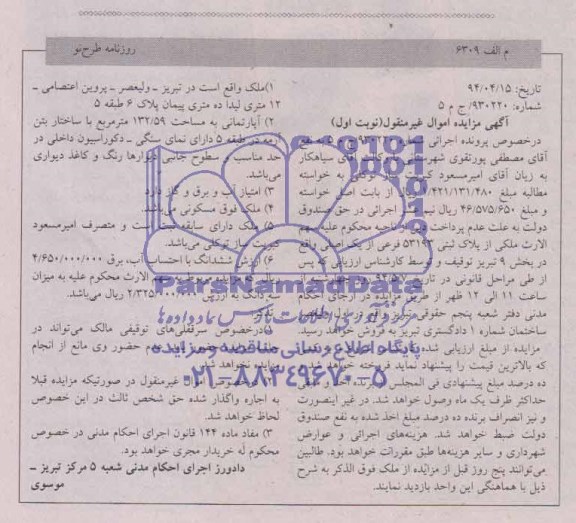 م الف ۶۳۰۹
روزنامه طرح نو
تاریخ: ۹۴/۰۴/۱۵
شماره: ۹۳۰۲۲۰/ ج م ۵
آگهی مزایده اموال غیرمنقول(نوبت اول)
درخصوص پرونده اجرائی
آقای مصطفی پورتقوی شهرستانی آقای سیاهکار
به زبان آقای امیرمسعود به خواسته
مطالبه مبلغ ۴۲۱/۱۳۱/۴۸۰ ریال از بابت اصل خواسته
و مبلغ ۴۶/۵۷۵/۶۵۰ ریال نیم اجرائی در حق صندوق
دولت به علت عدم پرداخت محکوم علیه سهم
الارث ملکی از پلاک ثبتی ۵۳۱۹۳ فرعی از یک اصلی واقع
در بخش ۹ تبریز توقیف و توسط کارشناس ارزیابی که پس
از طی مراحل قانونی در تاریخ
ساعت ۱۱ الی ۱۲ ظهر از طریق مزایده در اجرای احکام
مدنی دفتر شعبه پنجم حقوقی تبریز واقع در
ساختمان شماره ۱ دادگستری تبریز به فروش خواهد رسید.
مزایده از مبلغ ارزیابی شده
که بالاترین قیمت را پیشنهاد نماید فروخته خواهد شد.
ده درصد مبلغ پیشنهادی فی المجلس
حداکثر ظرف یک ماه وصول خواهد شد. در غیر اینصورت
و نیز انصراف برنده ده درصد مبلغ اخذ شده به نفع صندوق
دولت ضبط خواهد شد. هزینه‌های اجرائی و عوارض
شهرداری و سایر هزینه‌ها طبق مقررات خواهد بود. طالبین
می‌توانند پنج روز قبل از مزایده از ملک فوق الذکر به شرح
ذیل با هماهنگی این واحد بازدید نمایند.
۱)ملک واقع است در تبریز ـ ولیعصر ـ پروین اعتصامی ـ
۱۲ متری لیدا ده متری پیمان پلاک ۶ طبقه ۵
۲) آپارتمانی به مساحت ۱۳۲/۵۹ مترمربع با ساختار بتن
آرمه در طبقه ۵ دارای نمای سنگی ـ دکوراسیون داخلی در
حد مناسب و سطوح جانبی دیوارها رنگ و کاغذ دیواری
می‌باشد.
۳) امتیاز آب و برق و گاز دارد
۴) ملک فوق مسکونی می‌باشد.
۵) ملک دارای سابقه ثبت است و متصرف امیرمسعود
می‌باشد.
۶) ارزش ششدانگ با احتساب آب، برق ۴/۶۵۰/۰۰۰/۰۰۰
ریال الارث محکوم علیه به میزان
سه دانگ به ارزش ۲/۳۲۵/۰۰۰/۰۰۰ ریال می‌باشد.
درخصوص سرقفلی‌های توقیفی مالک می‌تواند در
عدم حضور وی مانع از انجام
اموال غیرمنقول در صورتیکه مزایده قبلا
به اجاره واگذار شده حق شخص ثالث در این خصوص
لحاظ خواهد شد.
۳) مفاد ماده ۱۴۴ قانون اجرای احکام مدنی در خصوص
محکوم له خریدار مجری خواهد بود.
دادورز اجرای احکام مدنی شعبه ۵ مرکز تبریز ـ
موسوی
ParsNamadData
پایگاه اطلاع رسانی مناقصه و مزایده
۰۲۱-۸۸۳۴۹۶۷۰-۵